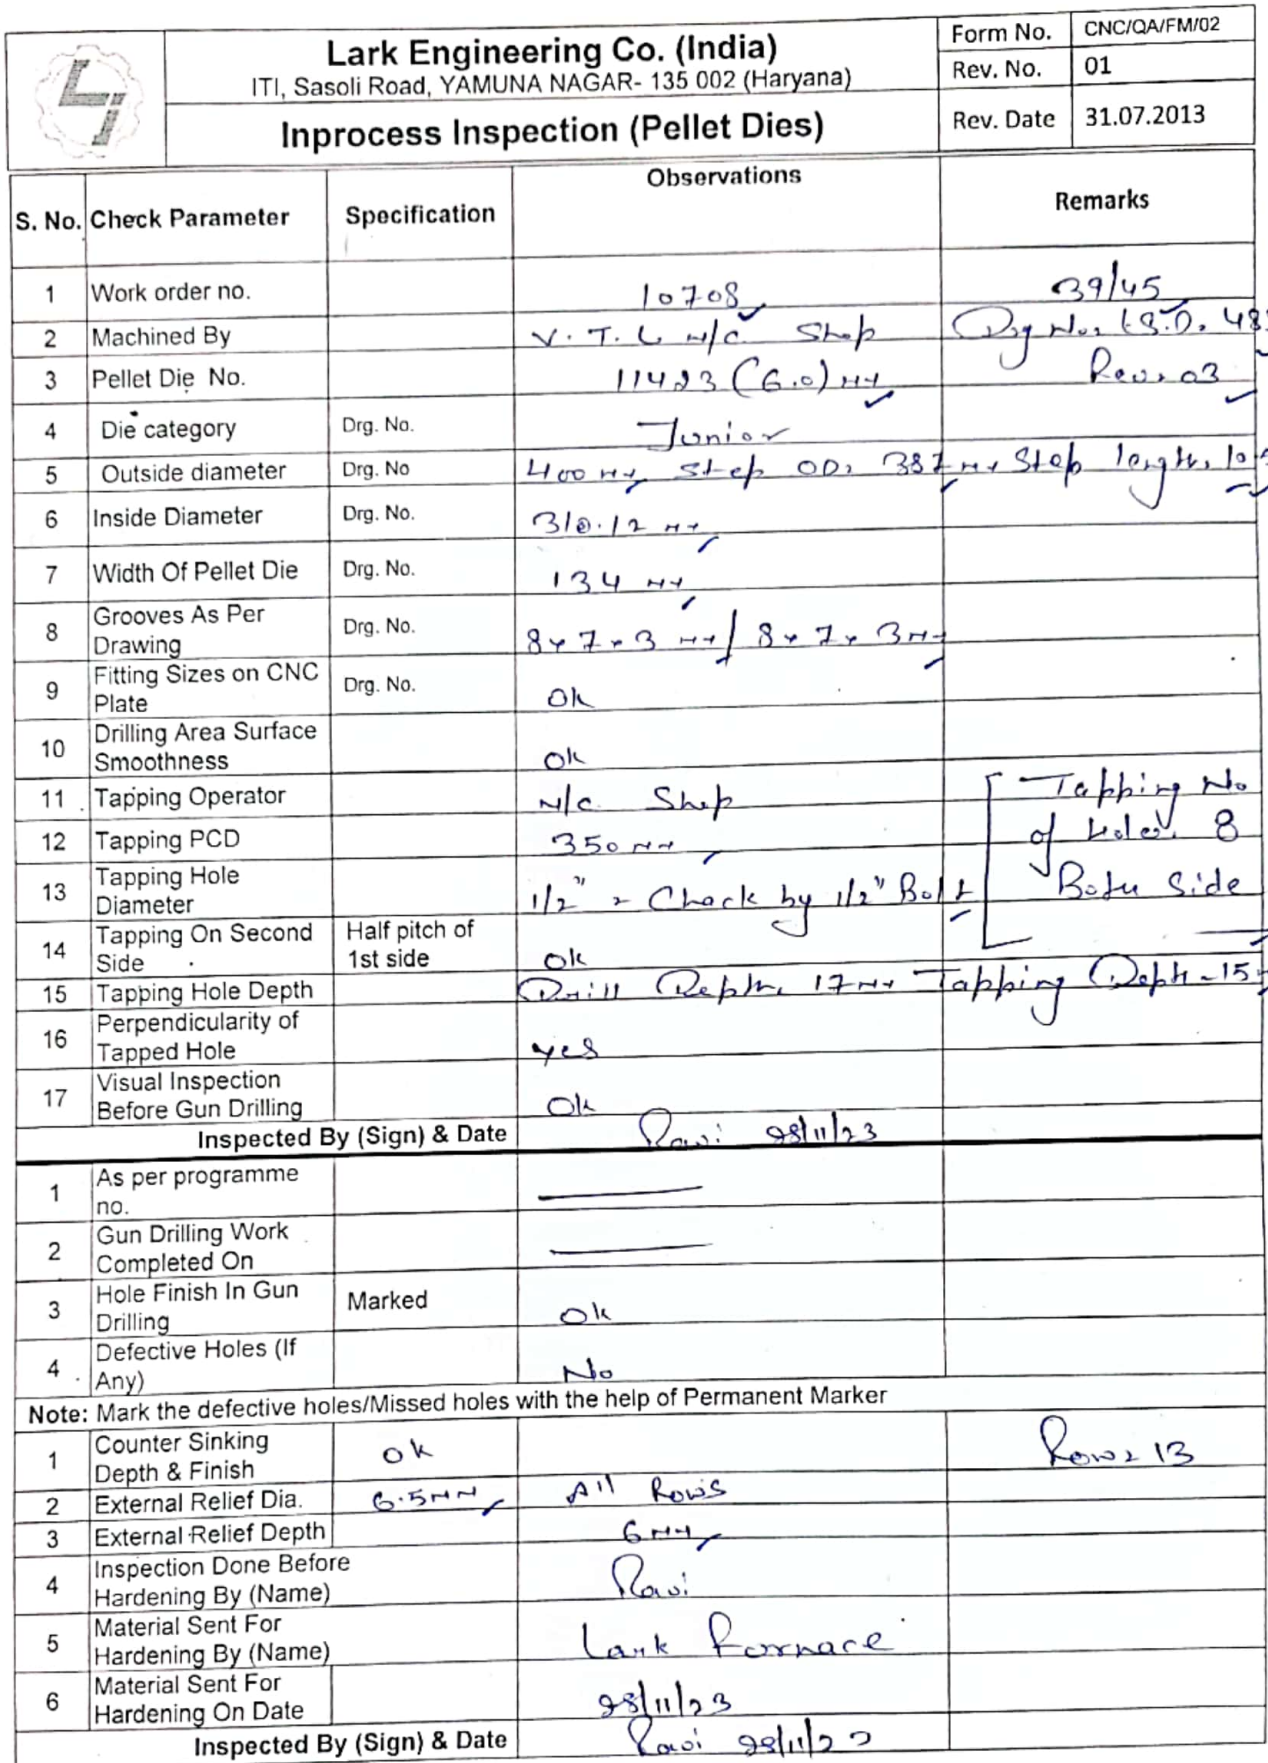 Lark Engineering Co. (India)
ITI, Sasoli Road, YAMUNA NAGAR- 135 002 (Haryana)
Inprocess Inspection (Pellet Dies)
Form No. CNC/QA/FM/02
Rev. No. 01
Rev. Date 31.07.2013
S. No. Check Parameter Specification Observations Remarks
1 Work order no. 10708 39/45
2 Machined By V.T.L N/C Shop Drg No.
3 Pellet Die No. 11423 (6.0) MM Rev. 03
4 Die category Drg. No. Junior
5 Outside diameter Drg. No 400 MM Step OD. 387 MM Step length.
6 Inside Diameter Drg. No. 310.12 MM
7 Width Of Pellet Die Drg. No. 134 MM
8 Grooves As Per Drawing Drg. No. 8x7x3 MM / 8x7x3 MM
9 Fitting Sizes on CNC Plate Drg. No. Ok
10 Drilling Area Surface Smoothness Ok
11 Tapping Operator N/C Shop Tapping No
12 Tapping PCD 350 MM of Holes. 8
13 Tapping Hole Diameter 1/2" = Check by 1/2" Bolt Both Side
14 Tapping On Second Side Half pitch of 1st side Ok
15 Tapping Hole Depth Drill Depth. 17MM Tapping Depth - 15
16 Perpendicularity of Tapped Hole yes
17 Visual Inspection Before Gun Drilling Ok
Inspected By (Sign) & Date Ravi 28/11/23
1 As per programme no.
2 Gun Drilling Work Completed On
3 Hole Finish In Gun Drilling Marked Ok
4 Defective Holes (If Any) No
Note: Mark the defective holes/Missed holes with the help of Permanent Marker
1 Counter Sinking Depth & Finish Ok Row = 13
2 External Relief Dia. 6.5MM All Rows
3 External Relief Depth 6MM
4 Inspection Done Before Hardening By (Name) Ravi
5 Material Sent For Hardening By (Name) Lark Fornace
6 Material Sent For Hardening On Date 28/11/23
Inspected By (Sign) & Date Ravi 28/11/23